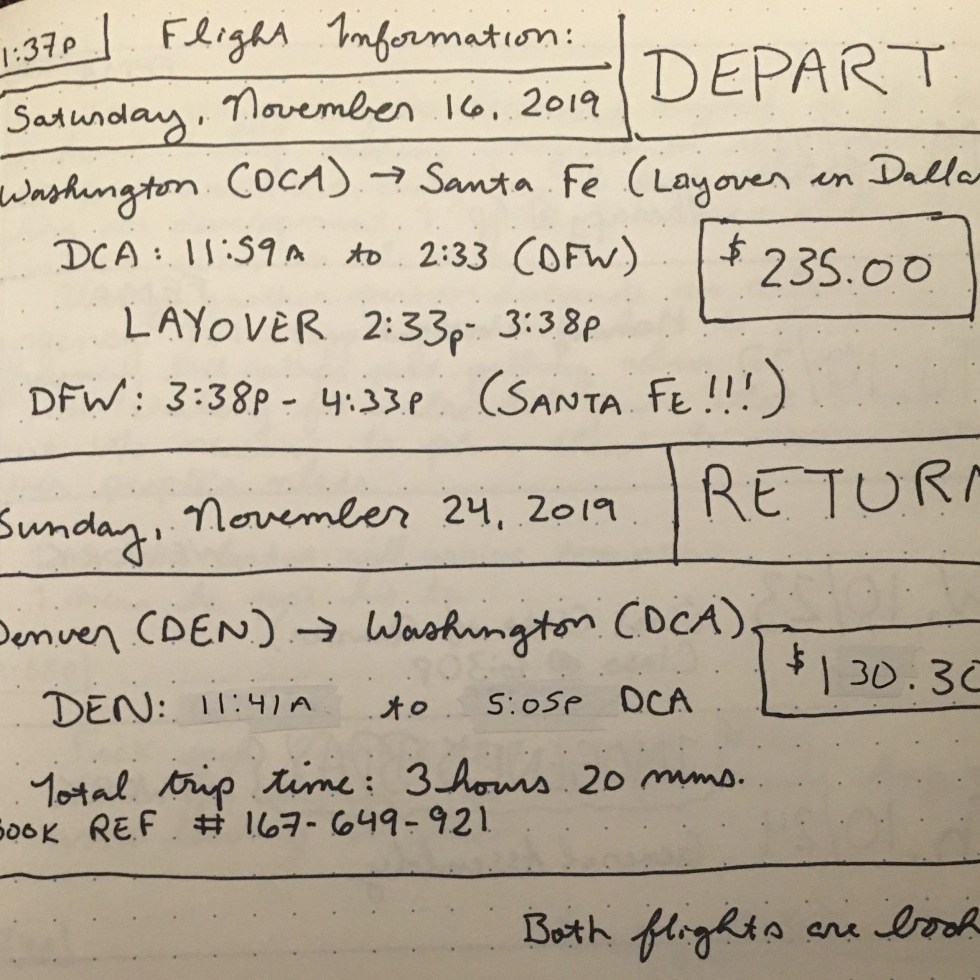 1:37P Flight Information:
DEPART
Saturday, November 16, 2019
Washington (DCA) → Santa Fe (Layover in Dalla
DCA: 11:59A to 2:33 (DFW)
$235.00
LAYOVER 2:33p - 3:38p
DFW: 3:38P - 4:33P (SANTA FE!!!)
Sunday, November 24, 2019
RETURN
Denver (DEN) → Washington (DCA)
$130.30
DEN: 11:41A to 5:05P DCA
Total trip time: 3 hours 20 mins.
BOOK REF # 167-649-921
Both flights are book